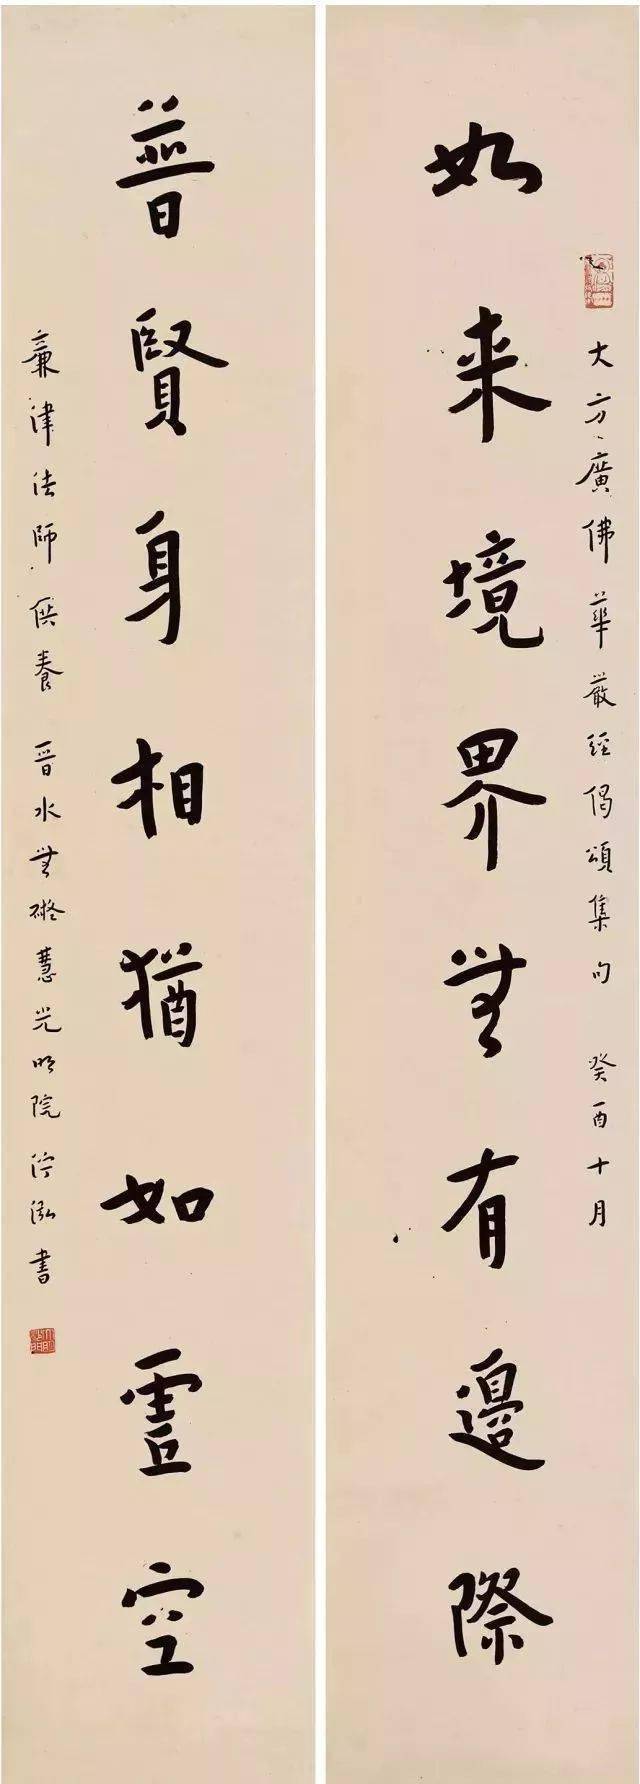 大方廣佛華嚴經偈頌集句 癸酉十月
如来境界無有邊際
普賢身相猶如虛空
廉津法師供養 晉水無礙慧光明院 沙泓書